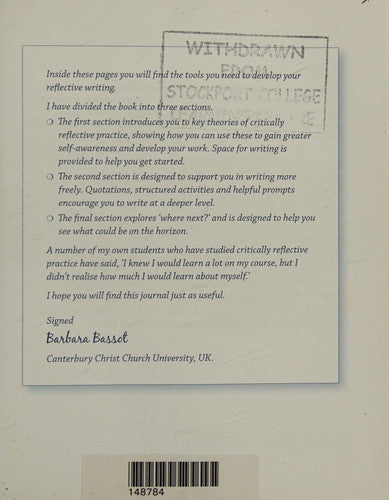 WITHDRAWN
FROM
STOCKPORT COLLEGE
Inside these pages you will find the tools you need to develop your
reflective writing.
I have divided the book into three sections.
The first section introduces you to key theories of critically
reflective practice, showing how you can use these to gain greater
self-awareness and develop your work. Space for writing is
provided to help you get started.
The second section is designed to support you in writing more
freely. Quotations, structured activities and helpful prompts
encourage you to write at a deeper level.
The final section explores ‘where next?’ and is designed to help you
see what could be on the horizon.
A number of my own students who have studied critically reflective
practice have said, ‘I knew I would learn a lot on my course, but I
didn’t realise how much I would learn about myself.’
I hope you will find this journal just as useful.
Signed
Barbara Bassot
Canterbury Christ Church University, UK.
148784